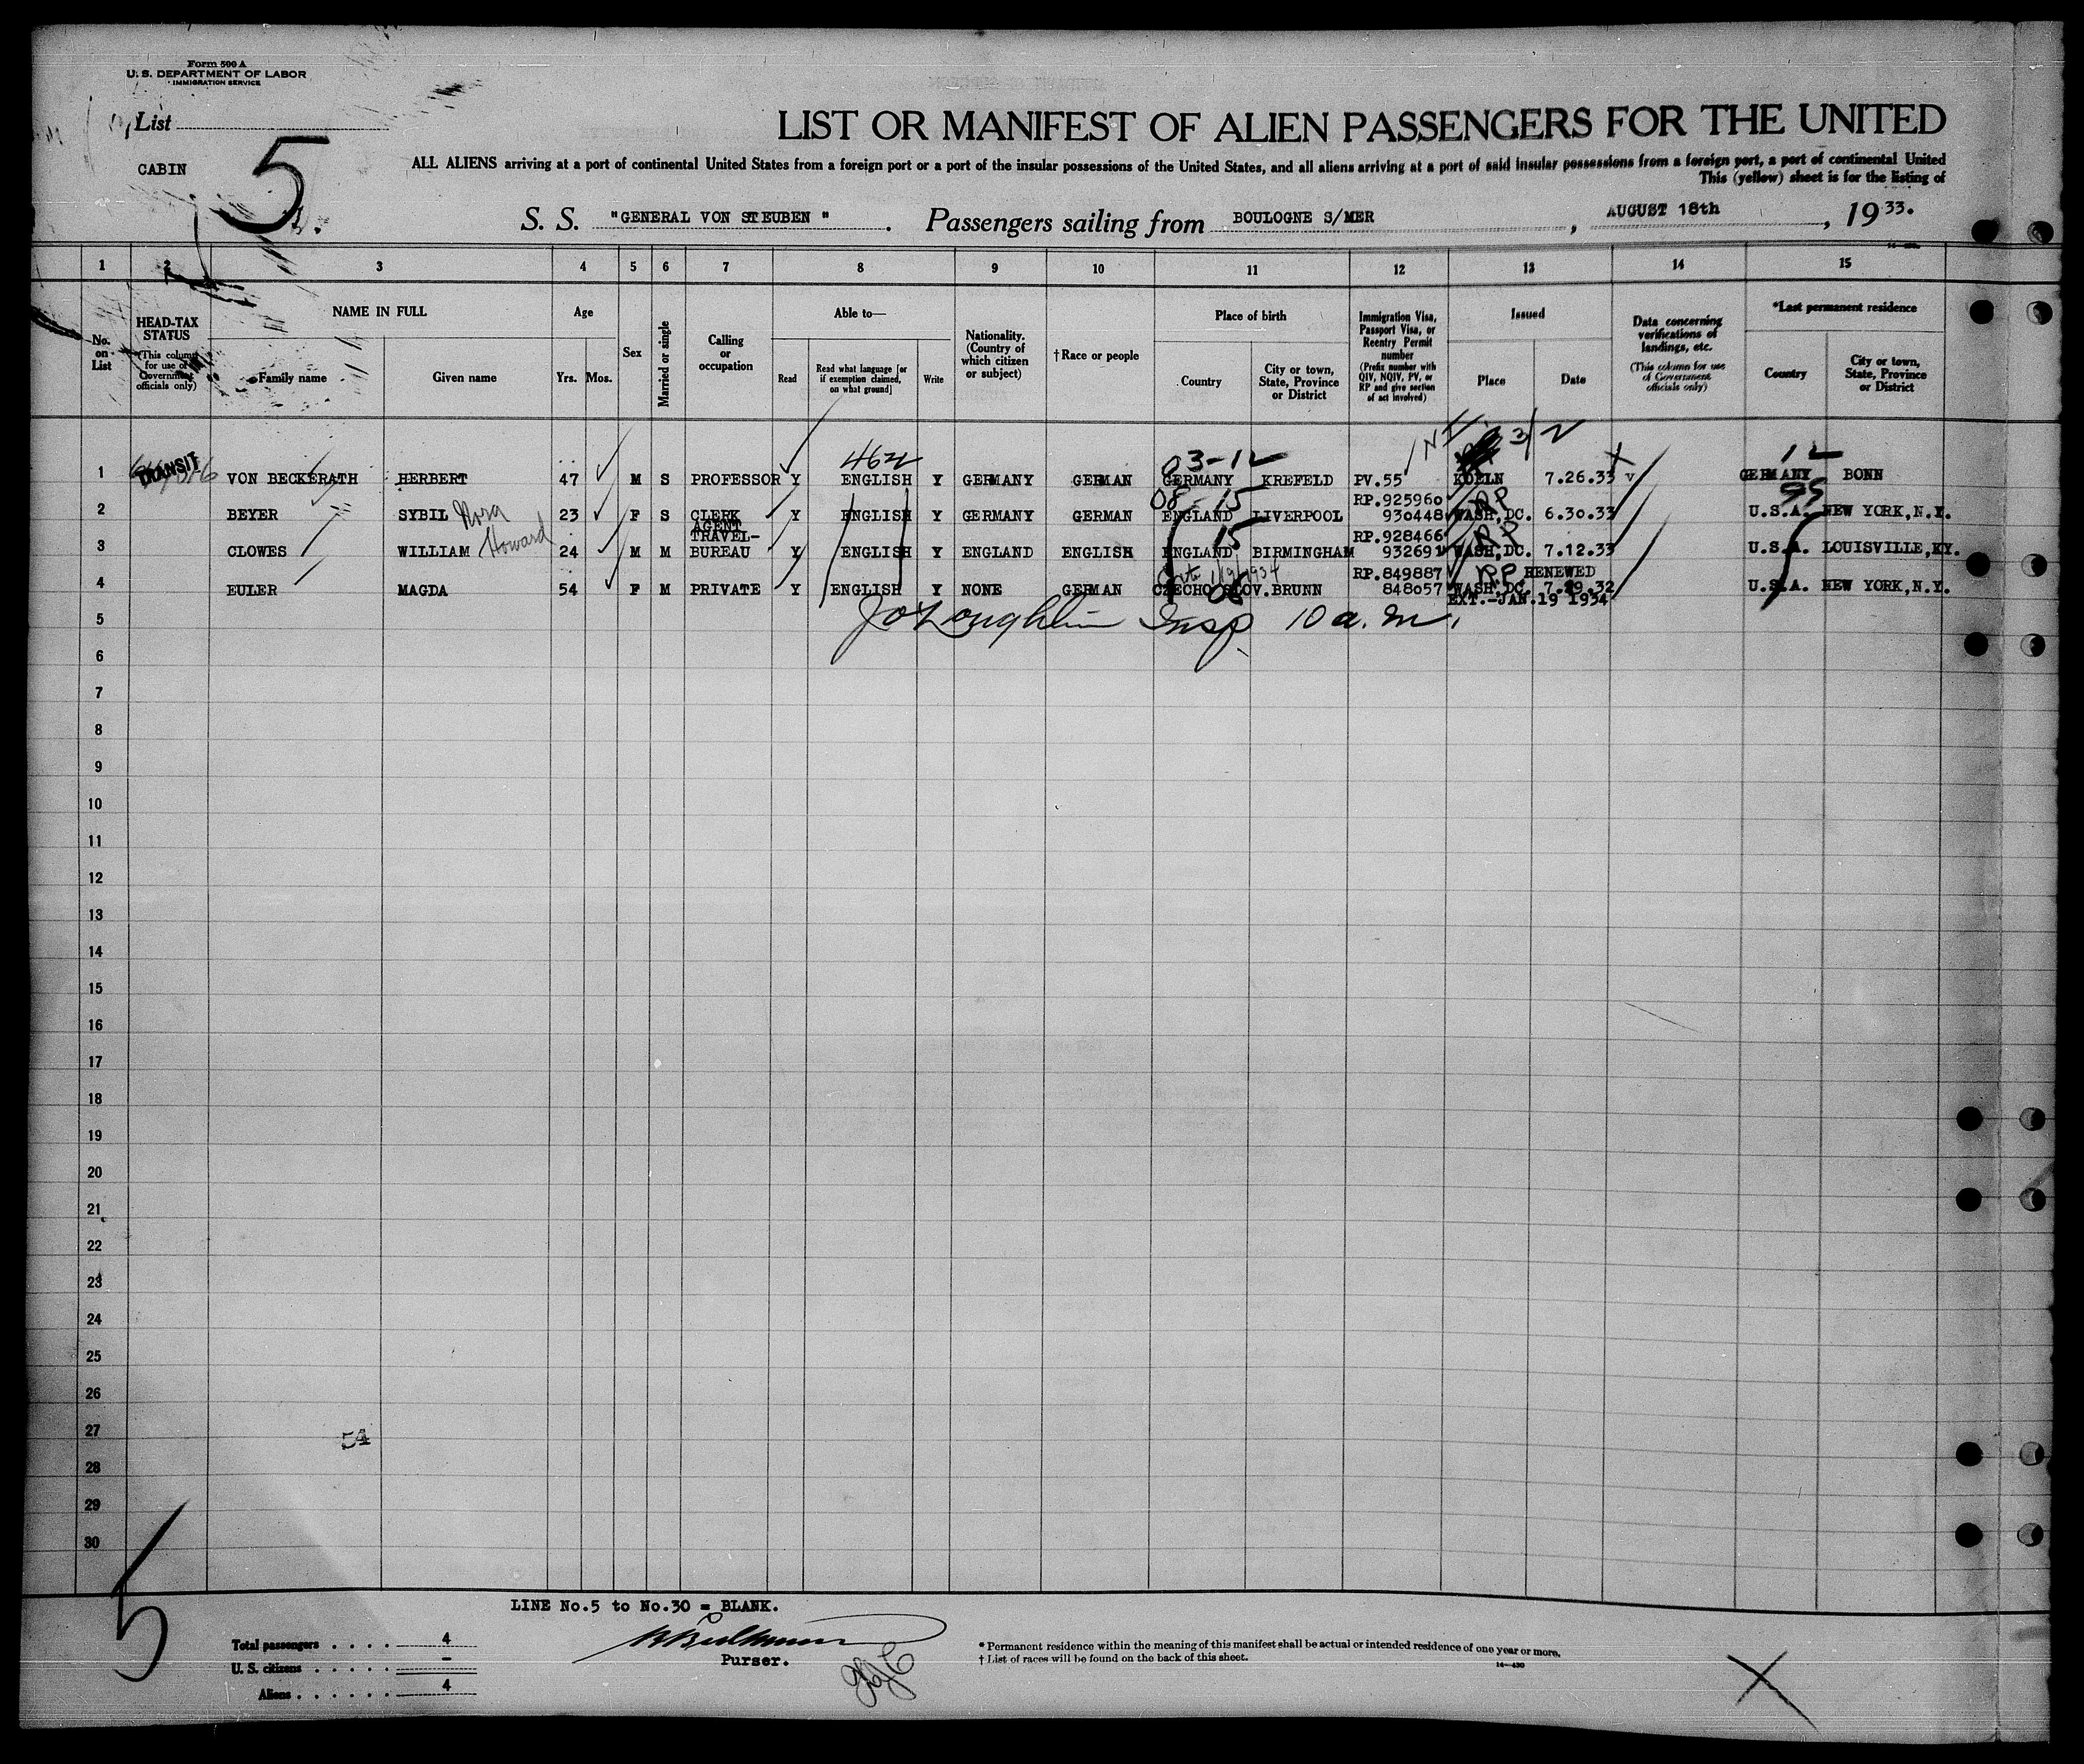 Form 500 A
U. S. DEPARTMENT OF LABOR
IMMIGRATION SERVICE
List
CABIN
5
LIST OR MANIFEST OF ALIEN PASSENGERS FOR THE UNITED
ALL ALIENS arriving at a port of continental United States from a foreign port or a port of the insular possessions of the United States, and all aliens arriving at a port of said insular possessions from a foreign port, a port of continental United
This (yellow) sheet is for the listing of
S. S. "GENERAL VON STEUBEN". Passengers sailing from BOULOGNE S/MER, AUGUST 18th, 1933.
1 2 3 4 5 6 7 8 9 10 11 12 13 14 15
No. on List
HEAD-TAX STATUS
(This column for use of Government officials only)
NAME IN FULL
Family name
Given name
Age
Yrs. Mos.
Sex
Married or single
Calling or occupation
Able to—
Read
Read what language [or if exemption claimed, on what ground]
Write
Nationality. (Country of which citizen or subject)
†Race or people
Place of birth
Country
City or town, State, Province or District
Immigration Visa, Passport Visa, or Reentry Permit number
(Prefix number with QIV, NQIV, PV, or RP and give section of act involved)
Issued
Place
Date
Data concerning verifications of landings, etc.
(This column for use of Government officials only)
*Last permanent residence
Country
City or town, State, Province or District
03-12 3/2 12
1 TRANSIT VON BECKERATH HERBERT 47 M S PROFESSOR Y ENGLISH Y GERMANY GERMAN GERMANY KREFELD PV.55 KOELN 7.26.33 V GERMANY BONN
08-15 RP.925960 RP 99
2 BEYER SYBIL Nora 23 F S CLERK Y ENGLISH Y GERMANY GERMAN ENGLAND LIVERPOOL 930448 WASH,DC. 6.30.33 U.S.A. NEW YORK,N.Y.
AGENT TRAVEL- 15 RP.928466 RP
3 CLOWES WILLIAM Howard 24 M M BUREAU Y ENGLISH Y ENGLAND ENGLISH ENGLAND BIRMINGHAM 932691 WASH,DC. 7.12.33 U.S.A. LOUISVILLE,KY.
1/19/1934 RP.849887 RP RENEWED
4 EULER MAGDA 54 F M PRIVATE Y ENGLISH Y NONE GERMAN CZECHOSLOV. BRUNN 848057 WASH,DC. 7.19.32 U.S.A. NEW YORK,N.Y.
EXT.-JAN.19 1934
5 J O'Loughlin Insp. 10 a.m.
6
7
8
9
10
11
12
13
14
15
16
17
18
19
20
21
22
23
24
25
26
27 54
28
29
30
5
LINE No.5 to No.30 = BLANK.
Purser.
Total passengers . . . . 4
U. S. citizens . . . . . –
Aliens . . . . . . 4
* Permanent residence within the meaning of this manifest shall be actual or intended residence of one year or more.
† List of races will be found on the back of this sheet.
14—430
X